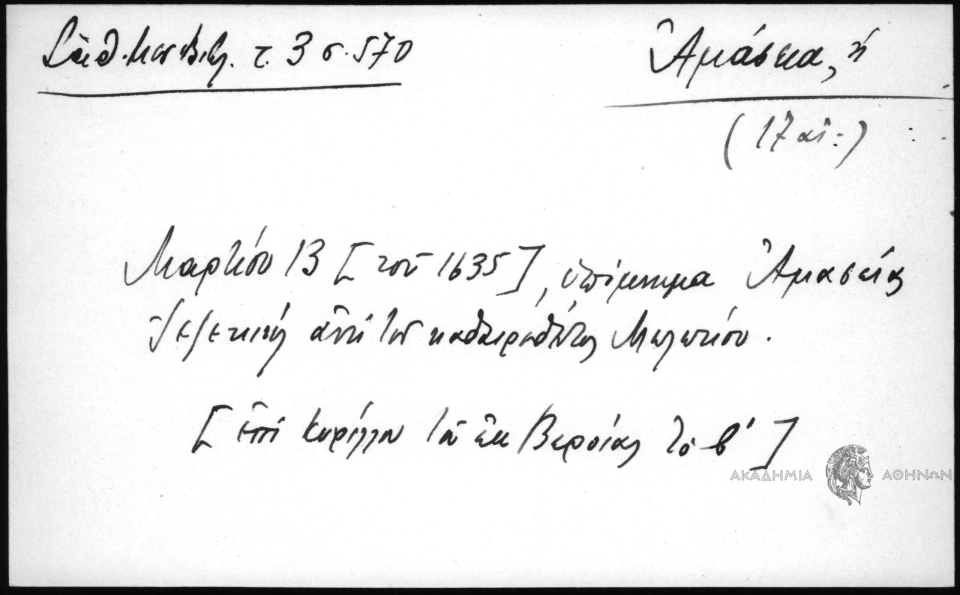 Σάθ. Μεσ. Βιβ. τ. 3 σ. 570
Ἀμάσεια, ἡ
(17 αἰ:)
Μαρτίου 13 [τοῦ 1635], ὑπόμνημα Ἀμασείας
Ἰεζεκιὴλ ἀντὶ τοῦ καθαιρεθέντος Μελετίου.
[ἐπὶ Κυρίλλου τοῦ ἐκ Βεροίας τὸ β']
ΑΚΑΔΗΜΙΑ ΑΘΗΝΩΝ